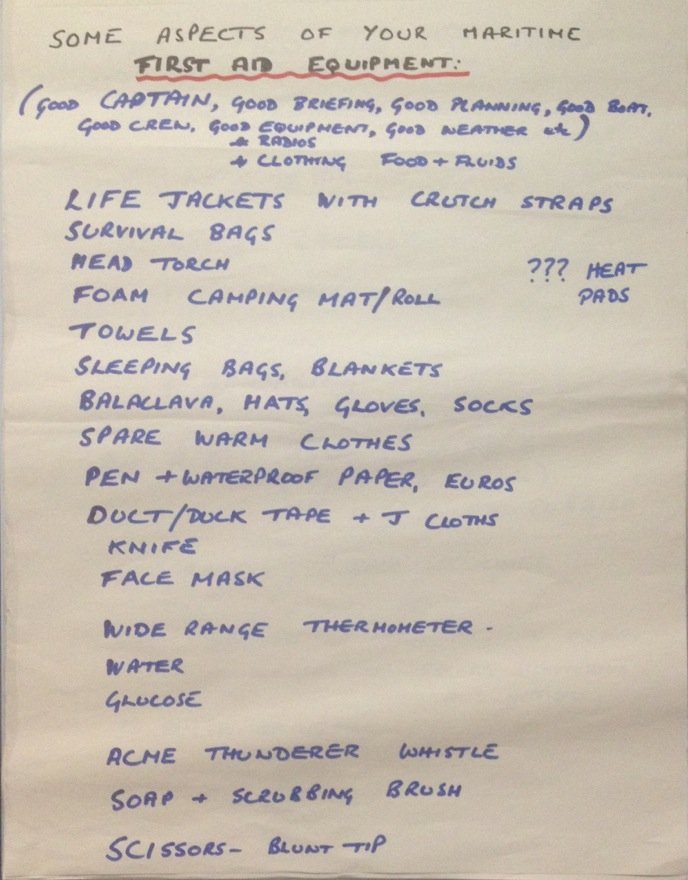 SOME ASPECTS OF YOUR MARITIME
FIRST AID EQUIPMENT:
(GOOD CAPTAIN, GOOD BRIEFING, GOOD PLANNING, GOOD BOAT,
GOOD CREW, GOOD EQUIPMENT, GOOD WEATHER etc)
+ RADIOS
+ CLOTHING FOOD + FLUIDS
LIFE JACKETS WITH CRUTCH STRAPS
SURVIVAL BAGS
HEAD TORCH
??? HEAT
PADS
FOAM CAMPING MAT/ROLL
TOWELS
SLEEPING BAGS, BLANKETS
BALACLAVA, HATS, GLOVES, SOCKS
SPARE WARM CLOTHES
PEN + WATERPROOF PAPER, EUROS
DUCT/DUCK TAPE + J CLOTHS
KNIFE
FACE MASK
WIDE RANGE THERMOMETER -
WATER
GLUCOSE
ACME THUNDERER WHISTLE
SOAP + SCRUBBING BRUSH
SCISSORS - BLUNT TIP